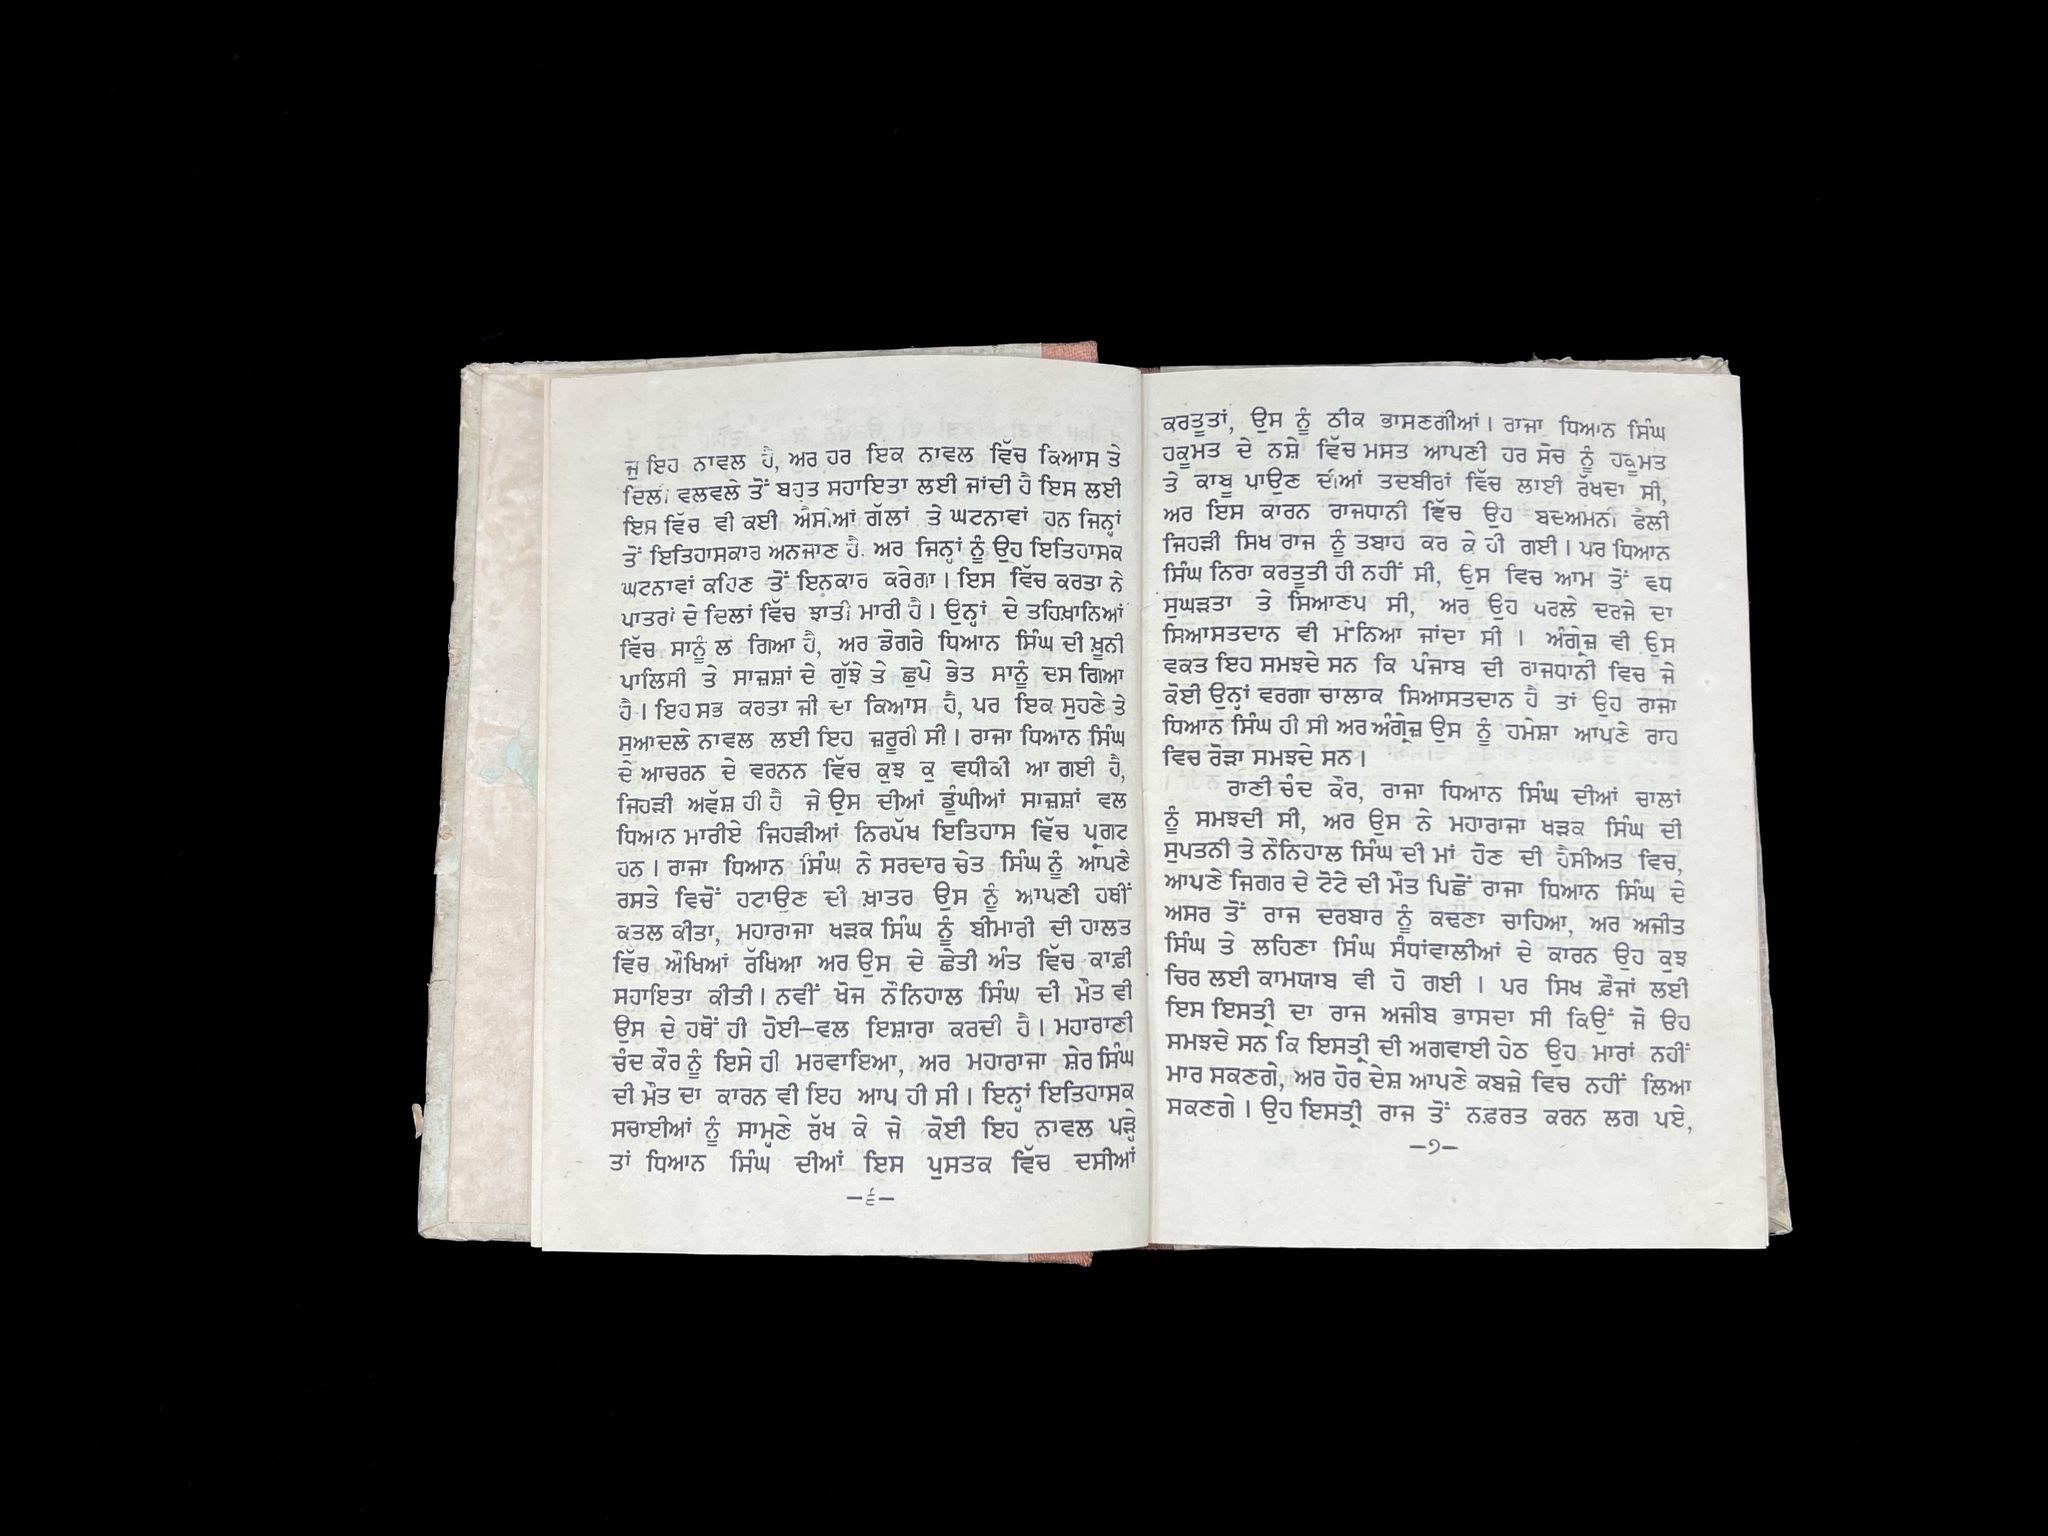 ਜੁ ਇਹ ਨਾਵਲ ਹੈ, ਅਰ ਹਰ ਇਕ ਨਾਵਲ ਵਿੱਚ ਕਿਆਸ ਤੇ
ਦਿਲੀ ਵਲਵਲੇ ਤੋਂ ਬਹੁਤ ਸਹਾਇਤਾ ਲਈ ਜਾਂਦੀ ਹੈ ਇਸ ਲਈ
ਇਸ ਵਿੱਚ ਵੀ ਕਈ ਐਸੀਆਂ ਗੱਲਾਂ ਤੇ ਘਟਨਾਵਾਂ ਹਨ ਜਿਨ੍ਹਾਂ
ਤੋਂ ਇਤਿਹਾਸਕਾਰ ਅਨਜਾਣ ਹੈ. ਅਰ ਜਿਨ੍ਹਾਂ ਨੂੰ ਉਹ ਇਤਿਹਾਸਕ
ਘਟਨਾਵਾਂ ਕਹਿਣ ਤੋਂ ਇਨਕਾਰ ਕਰੇਗਾ। ਇਸ ਵਿੱਚ ਕਰਤਾ ਨੇ
ਪਾਤਰਾਂ ਦੇ ਦਿਲਾਂ ਵਿੱਚ ਝਾਤੀ ਮਾਰੀ ਹੈ। ਉਨ੍ਹਾਂ ਦੇ ਤਹਿਖ਼ਾਨਿਆਂ
ਵਿੱਚ ਸਾਨੂੰ ਲ ਗਿਆ ਹੈ, ਅਰ ਡੋਗਰੇ ਧਿਆਨ ਸਿੰਘ ਦੀ ਖ਼ੂਨੀ
ਪਾਲਿਸੀ ਤੇ ਸਾਜ਼ਸ਼ਾਂ ਦੇ ਗੁੱਝੇ ਤੇ ਛੁਪੇ ਭੇਤ ਸਾਨੂੰ ਦਸ ਗਿਆ
ਹੈ। ਇਹ ਸਭ ਕਰਤਾ ਜੀ ਦਾ ਕਿਆਸ ਹੈ, ਪਰ ਇਕ ਸੁਹਣੇ ਤੇ
ਸੁਆਦਲੇ ਨਾਵਲ ਲਈ ਇਹ ਜ਼ਰੂਰੀ ਸੀ। ਰਾਜਾ ਧਿਆਨ ਸਿੰਘ
ਦੇ ਆਚਰਨ ਦੇ ਵਰਨਨ ਵਿੱਚ ਕੁਝ ਕੁ ਵਧੀਕੀ ਆ ਗਈ ਹੈ,
ਜਿਹੜੀ ਅਵੱਸ਼ ਹੀ ਹੈ ਜੇ ਉਸ ਦੀਆਂ ਡੂੰਘੀਆਂ ਸਾਜ਼ਸ਼ਾਂ ਵਲ
ਧਿਆਨ ਮਾਰੀਏ ਜਿਹੜੀਆਂ ਨਿਰਪੱਖ ਇਤਿਹਾਸ ਵਿੱਚ ਪ੍ਰਗਟ
ਹਨ। ਰਾਜਾ ਧਿਆਨ ਸਿੰਘ ਨੇ ਸਰਦਾਰ ਚੇਤ ਸਿੰਘ ਨੂੰ ਆਪਣੇ
ਰਸਤੇ ਵਿਚੋਂ ਹਟਾਉਣ ਦੀ ਖ਼ਾਤਰ ਉਸ ਨੂੰ ਆਪਣੀ ਹਥੀਂ
ਕਤਲ ਕੀਤਾ, ਮਹਾਰਾਜਾ ਖੜਕ ਸਿੰਘ ਨੂੰ ਬੀਮਾਰੀ ਦੀ ਹਾਲਤ
ਵਿੱਚ ਔਖਿਆਂ ਰੱਖਿਆ ਅਰ ਉਸ ਦੇ ਛੇਤੀ ਅੰਤ ਵਿੱਚ ਕਾਫ਼ੀ
ਸਹਾਇਤਾ ਕੀਤੀ। ਨਵੀਂ ਖੋਜ ਨੌਨਿਹਾਲ ਸਿੰਘ ਦੀ ਮੌਤ ਵੀ
ਉਸ ਦੇ ਹਥੋਂ ਹੀ ਹੋਈ—ਵਲ ਇਸ਼ਾਰਾ ਕਰਦੀ ਹੈ। ਮਹਾਰਾਣੀ
ਚੰਦ ਕੌਰ ਨੂੰ ਇਸੇ ਹੀ ਮਰਵਾਇਆ, ਅਰ ਮਹਾਰਾਜਾ ਸ਼ੇਰ ਸਿੰਘ
ਦੀ ਮੌਤ ਦਾ ਕਾਰਨ ਵੀ ਇਹ ਆਪ ਹੀ ਸੀ। ਇਨ੍ਹਾਂ ਇਤਿਹਾਸਕ
ਸਚਾਈਆਂ ਨੂੰ ਸਾਮ੍ਹਣੇ ਰੱਖ ਕੇ ਜੇ ਕੋਈ ਇਹ ਨਾਵਲ ਪੜ੍ਹੇ
ਤਾਂ ਧਿਆਨ ਸਿੰਘ ਦੀਆਂ ਇਸ ਪੁਸਤਕ ਵਿੱਚ ਦਸੀਆਂ
—੬—
ਕਰਤੂਤਾਂ, ਉਸ ਨੂੰ ਠੀਕ ਭਾਸਣਗੀਆਂ। ਰਾਜਾ ਧਿਆਨ ਸਿੰਘ
ਹਕੂਮਤ ਦੇ ਨਸ਼ੇ ਵਿੱਚ ਮਸਤ ਆਪਣੀ ਹਰ ਸੋਚ ਨੂੰ ਹਕੂਮਤ
ਤੇ ਕਾਬੂ ਪਾਉਣ ਦੀਆਂ ਤਦਬੀਰਾਂ ਵਿੱਚ ਲਾਈ ਰੱਖਦਾ ਸੀ,
ਅਰ ਇਸ ਕਾਰਨ ਰਾਜਧਾਨੀ ਵਿੱਚ ਉਹ ਬਦਅਮਨੀ ਫੈਲੀ
ਜਿਹੜੀ ਸਿਖ ਰਾਜ ਨੂੰ ਤਬਾਹ ਕਰ ਕੇ ਹੀ ਗਈ। ਪਰ ਧਿਆਨ
ਸਿੰਘ ਨਿਰਾ ਕਰਤੂਤੀ ਹੀ ਨਹੀਂ ਸੀ, ਉਸ ਵਿਚ ਆਮ ਤੋਂ ਵਧ
ਸੁਘੜਤਾ ਤੇ ਸਿਆਣਪ ਸੀ, ਅਰ ਉਹ ਪਰਲੇ ਦਰਜੇ ਦਾ
ਸਿਆਸਤਦਾਨ ਵੀ ਮੰਨਿਆ ਜਾਂਦਾ ਸੀ । ਅੰਗ੍ਰੇਜ਼ ਵੀ ਉਸ
ਵਕਤ ਇਹ ਸਮਝਦੇ ਸਨ ਕਿ ਪੰਜਾਬ ਦੀ ਰਾਜਧਾਨੀ ਵਿਚ ਜੇ
ਕੋਈ ਉਨ੍ਹਾਂ ਵਰਗਾ ਚਾਲਾਕ ਸਿਆਸਤਦਾਨ ਹੈ ਤਾਂ ਉਹ ਰਾਜਾ
ਧਿਆਨ ਸਿੰਘ ਹੀ ਸੀ ਅਰ ਅੰਗ੍ਰੇਜ਼ ਉਸ ਨੂੰ ਹਮੇਸ਼ਾ ਆਪਣੇ ਰਾਹ
ਵਿਚ ਰੋੜਾ ਸਮਝਦੇ ਸਨ।
ਰਾਣੀ ਚੰਦ ਕੌਰ, ਰਾਜਾ ਧਿਆਨ ਸਿੰਘ ਦੀਆਂ ਚਾਲਾਂ
ਨੂੰ ਸਮਝਦੀ ਸੀ, ਅਰ ਉਸ ਨੇ ਮਹਾਰਾਜਾ ਖੜਕ ਸਿੰਘ ਦੀ
ਸੁਪਤਨੀ ਤੇ ਨੌਨਿਹਾਲ ਸਿੰਘ ਦੀ ਮਾਂ ਹੋਣ ਦੀ ਹੈਸੀਅਤ ਵਿਚ,
ਆਪਣੇ ਜਿਗਰ ਦੇ ਟੋਟੇ ਦੀ ਮੌਤ ਪਿਛੋਂ ਰਾਜਾ ਧਿਆਨ ਸਿੰਘ ਦੇ
ਅਸਰ ਤੋਂ ਰਾਜ ਦਰਬਾਰ ਨੂੰ ਕਢਣਾ ਚਾਹਿਆ, ਅਰ ਅਜੀਤ
ਸਿੰਘ ਤੇ ਲਹਿਣਾ ਸਿੰਘ ਸੰਧਾਂਵਾਲੀਆਂ ਦੇ ਕਾਰਨ ਉਹ ਕੁਝ
ਚਿਰ ਲਈ ਕਾਮਯਾਬ ਵੀ ਹੋ ਗਈ । ਪਰ ਸਿਖ ਫ਼ੌਜਾਂ ਲਈ
ਇਸ ਇਸਤ੍ਰੀ ਦਾ ਰਾਜ ਅਜੀਬ ਭਾਸਦਾ ਸੀ ਕਿਉਂ ਜੋ ਓਹ
ਸਮਝਦੇ ਸਨ ਕਿ ਇਸਤ੍ਰੀ ਦੀ ਅਗਵਾਈ ਹੇਠ ਉਹ ਮਾਰਾਂ ਨਹੀਂ
ਮਾਰ ਸਕਣਗੇ, ਅਰ ਹੋਰ ਦੇਸ਼ ਆਪਣੇ ਕਬਜ਼ੇ ਵਿਚ ਨਹੀਂ ਲਿਆ
ਸਕਣਗੇ। ਉਹ ਇਸਤ੍ਰੀ ਰਾਜ ਤੋਂ ਨਫ਼ਰਤ ਕਰਨ ਲਗ ਪਏ,
—੭—